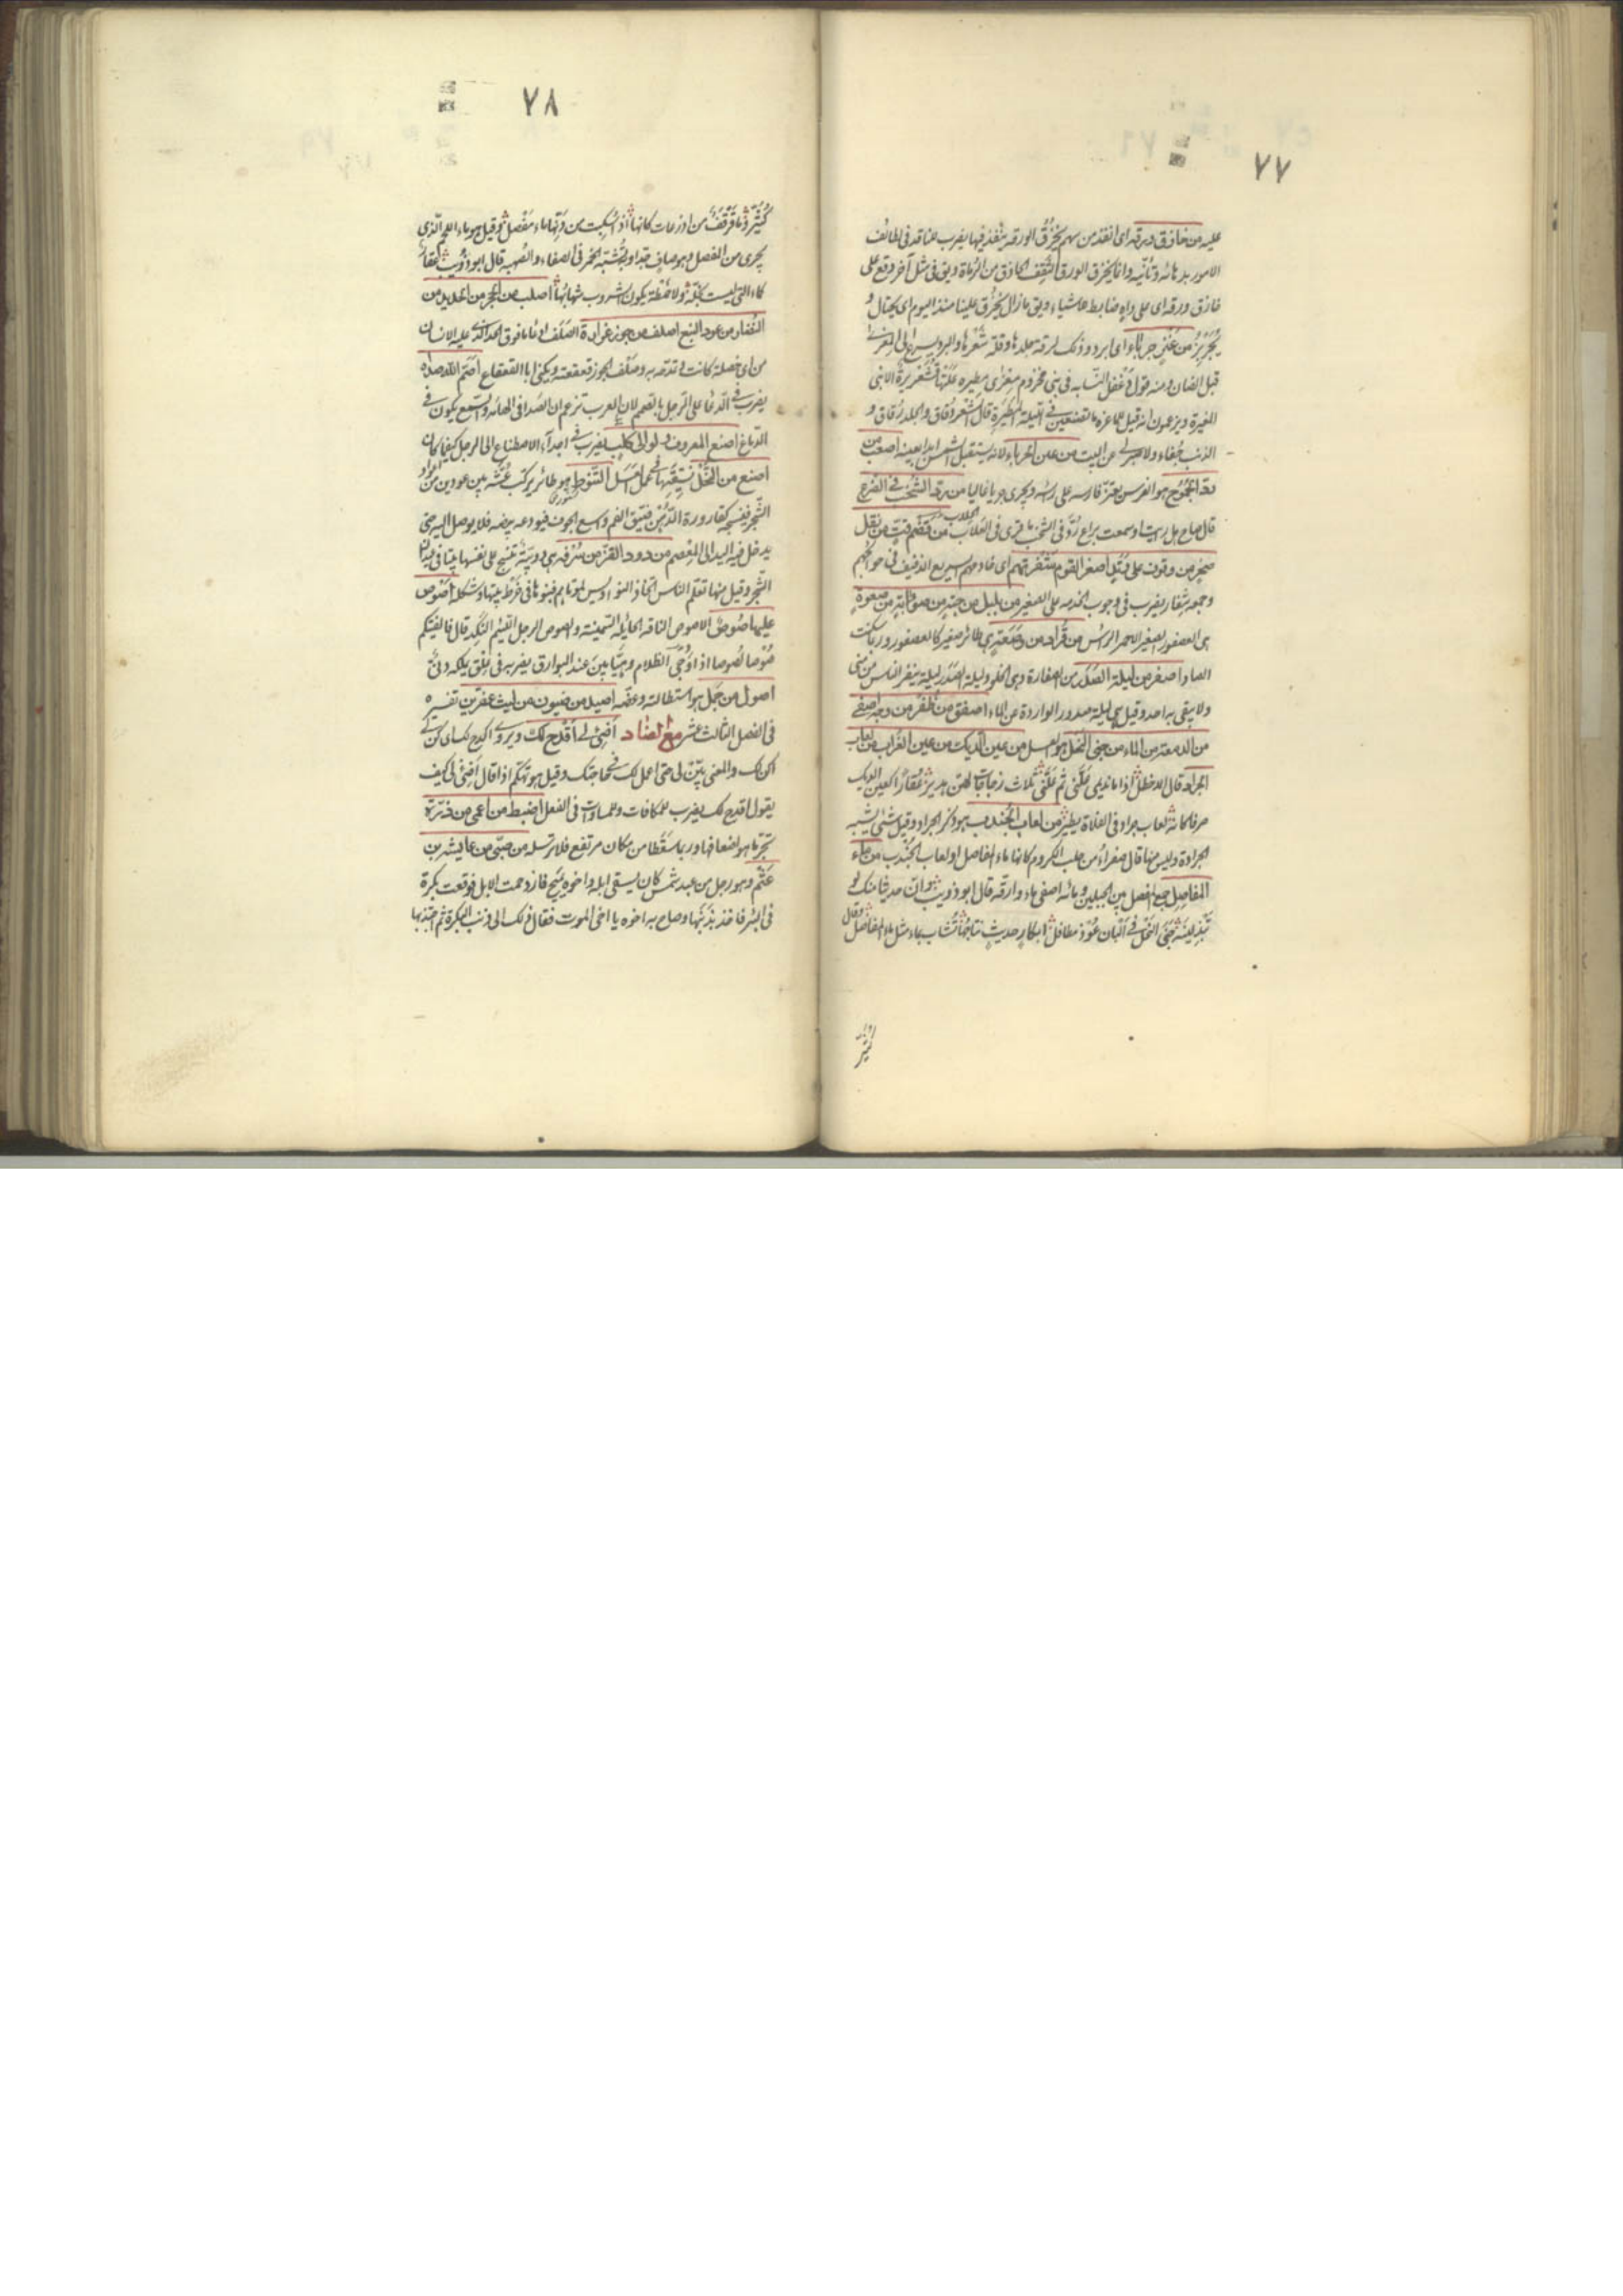 ٧٧
عليه من خازق ورقه اى انفذ من سهم يخزق الورقه ينفذ فيها يضرب لنافذ فى لطائف
الامور بدهائه وتأنيه وانما يخزق الورق الثقف الحاذق من الرماة ويق فى مثل آخر وقع على
خازق ورقه اى على داه ضابط للاشياء ويق ما زال يخزق علينا منذ اليوم اى يحتال و
يجربز من عنز جرباء اى ابرد وذلك لرقة جلدها وقلة شعرها والبرد يسرع الى المعزى
قبل الضان ومنه قول دغفل النسابه فى بنى مخزوم معزى مطيره علتها قشعريرة الا بنى
المغيرة ويزعمون انه قيل للماعزه ما تصنعين فى الليلة المطيرة قالت الشعر دقاق والجلد رقاق و
الذنب جفاء ولا صبر لى عن البيت من عين الحرباء لانه يستقبل الشمس ابدا بعينه اصعب من
رد الجموح هو الفرس يعتز فارسه على رأسه ويجرى جريا غالبا من رد الشخب فى الضرع
قال صاح هل رايت او سمعت براع رد فى الضرع ما قرى فى العلاب من قضم قت من نقل
صخر من وقوف على وتد اصغر القوم شفرتهم اى خادمهم سريع الخفيف فى حوائجهم
وجمعه شفار يضرب فى وجوب الخدمه على الصغير من بلبل من حبة من صوابة من صعوة
هى العصفور الصغير الاحمر الرأس من قراد من وصعة هى طائر صغير كالعصفور وربما سكنت
الصاد اصفر من ليلة الصدر من الصفارة وهى الخلو وليلة الصدر ليلة ينفر الناس من منى
ولا يبقى به احد وقيل هى ليلة صدور الواردة عن الماء اصفق من ظفر من وجه اصفى
من الدمعة من الماء من جنى النحل هو العسل من عين الديك من عين الغراب من لعاب
الجراد قال الاخطل اذا ما نديمى علنى ثم علنى ثلاث زجاجات لهن هدير عقارا كعين الديك
صرفا كانه لعاب جراد فى الفلاة يطير من لعاب الجندب هو ذكر الجراد وقيل شئ يشبه
الجرادة وليس منها قال صفراء من حلب الكروم كانها ماء المفاصل او لعاب الجندب من ماء
المفاصل جمع المفصل بين الجبلين وماؤه اصفى ماء وارقه قال ابو ذويب وان حديثا منك لو
تبذلينه جنى النحل فى البان عوذ مطافل ابكار حديث نتاجها تشاب بماء مثل ماء المفاصل وقال
كثير
٧٨
كثير وما قرقف من اذرعات كانها اذا سكبت من دنها ماء مفصل وقيل هو ماء اللحم الذى
يجرى من المفصل وهو صاف جدا وتشتبه الخمر فى الصفاء والصهبه قال ابو ذويب عقار
كماء النئ ليست بخلة ولا خمطة يكوى الشروب شهابها اصلب من الحجر من الحديد من
النضار من عود النبع اصلف من جوز غرارة الصلف الادعاء ما فوق الحد
من اى خصلة كانت تمدحه به وصلف الجوز قعقعته ويكنى ابا القعقاع اصم الله صداه
يضرب فى الدعاء على الرجل بالصمم لان العرب تزعم ان الصدا فى الهامه والسمع يكون فى
الدماغ اصنع المعروف ولو الى كلب يضرب فى اجداء الاصطناع الى الرجل كيفما كان
اصنع من النحل نيقتها فى عمل العسل من التنوط هو طائر يركب عشه بين عودين من اعواد
الشجر فينسجه كقارورة الدهن ضيق الفم واسع الجوف فيودعه بيضه فلا يوصل اليه حتى
يدخل فيه اليد الى المعصم من دود القز من سرفه هى دويبة تنسج على نفسها بيتا فى عيدان
الشجر وقيل منها تعلم الناس اتخاذ النواويس لموتاهم فبنوها فى خرط بيتها وشكله اصوص
عليها صوص الاصوص الناقه الحايله السمينه والصوص الرجل اللئيم النكد قال فالفيتكم
صوصا لصوصا اذا دجى الظلام وهيابين عند البوارق يضرب فى اللئيم يملكه دنئ
اصول من جمل هو استطالته وعضه اصيد من ضيون من ليث عفرين تفسيره
فى الفصل الثالث عشر مع الضاد اضئ لى اقدح لك ويروى اكدح لك اى كن لى
اكن لك والمعنى بين لى حتى اعمل لك فى حاجتك وقيل هو تهكم اذا قال اضئ لى كيف
يقول اقدح لك يضرب للمكافات وللمساواة فى الفعل اضبط من اعمى من ذرة
تجر ما هو اضعافها وربما سقطا من مكان مرتفع فلا ترسله من صبى من عائشه بن
عثم وهو رجل من عبد شمس كان يسقى ابله واخوه يميح فازدحمت الابل فوقعت بكرة
فى البئر فاخذ بذنبها وصاح به اخوه يا اخى الموت فقال ذلك الى ذنب البكرة ثم اجتذبها